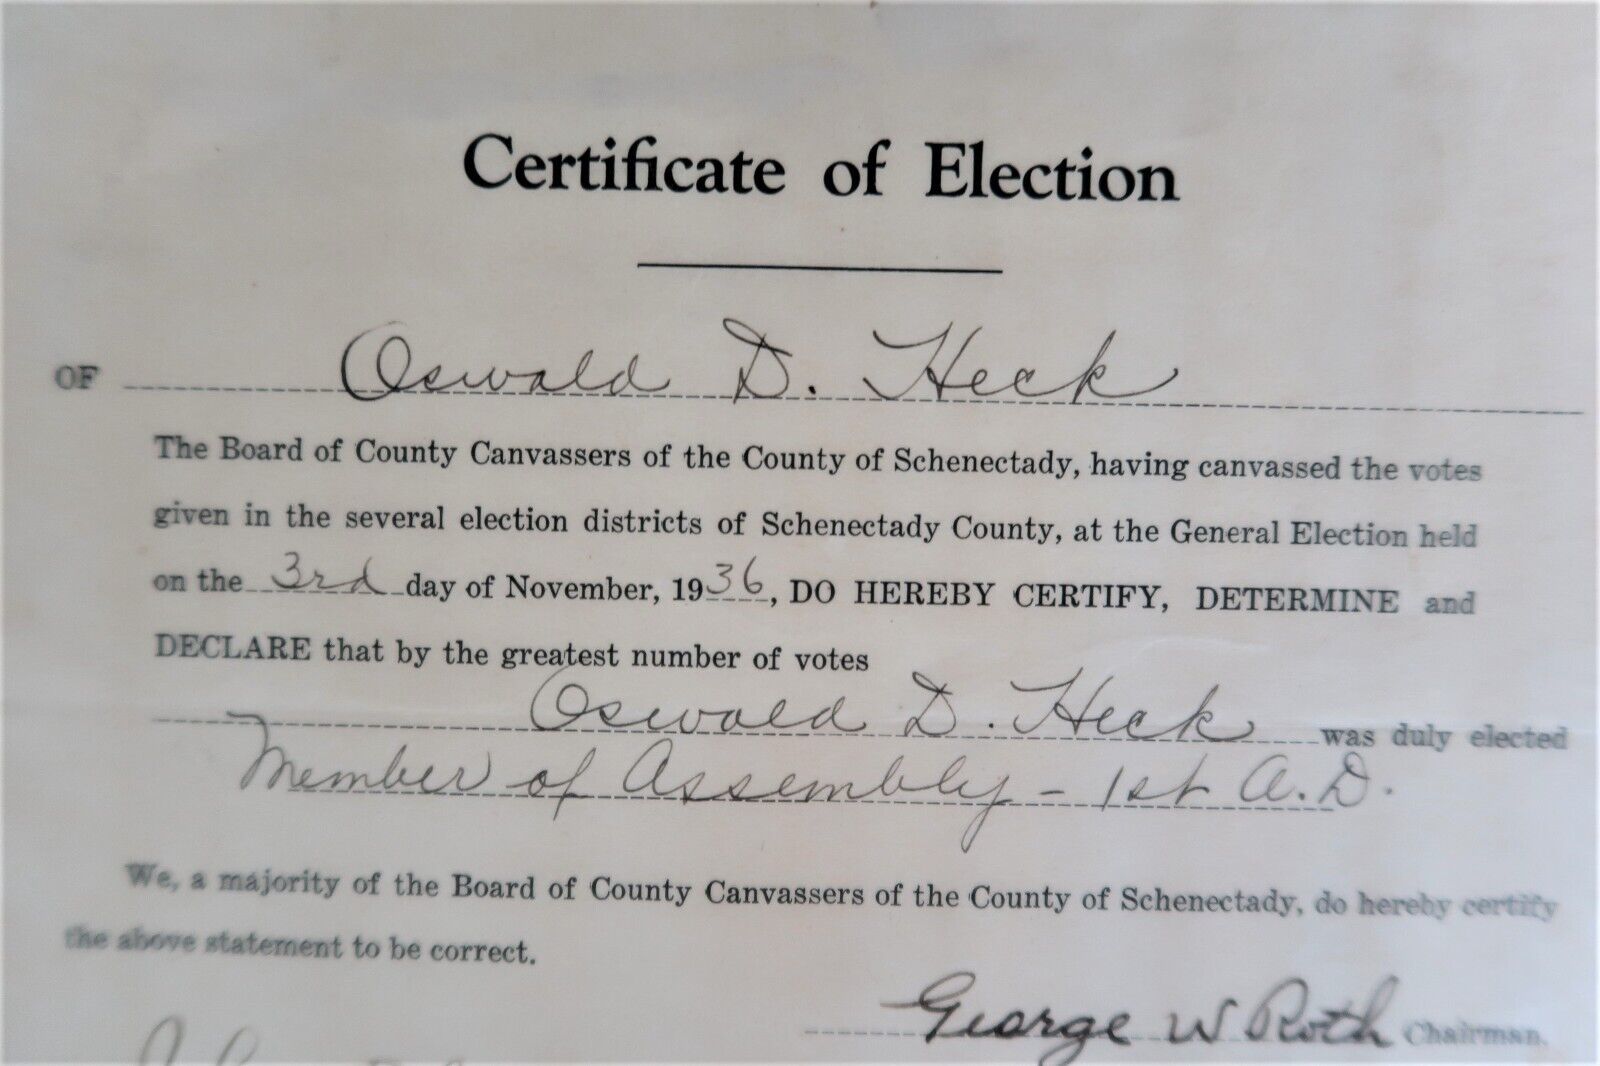 Certificate of Election
OF Oswald D. Heck
The Board of County Canvassers of the County of Schenectady, having canvassed the votes
given in the several election districts of Schenectady County, at the General Election held
on the 3rd day of November, 1936, DO HEREBY CERTIFY, DETERMINE and
DECLARE that by the greatest number of votes
Oswald D. Heck was duly elected
Member of Assembly - 1st A.D.
We, a majority of the Board of County Canvassers of the County of Schenectady, do hereby certify
the above statement to be correct.
George W Roth Chairman.